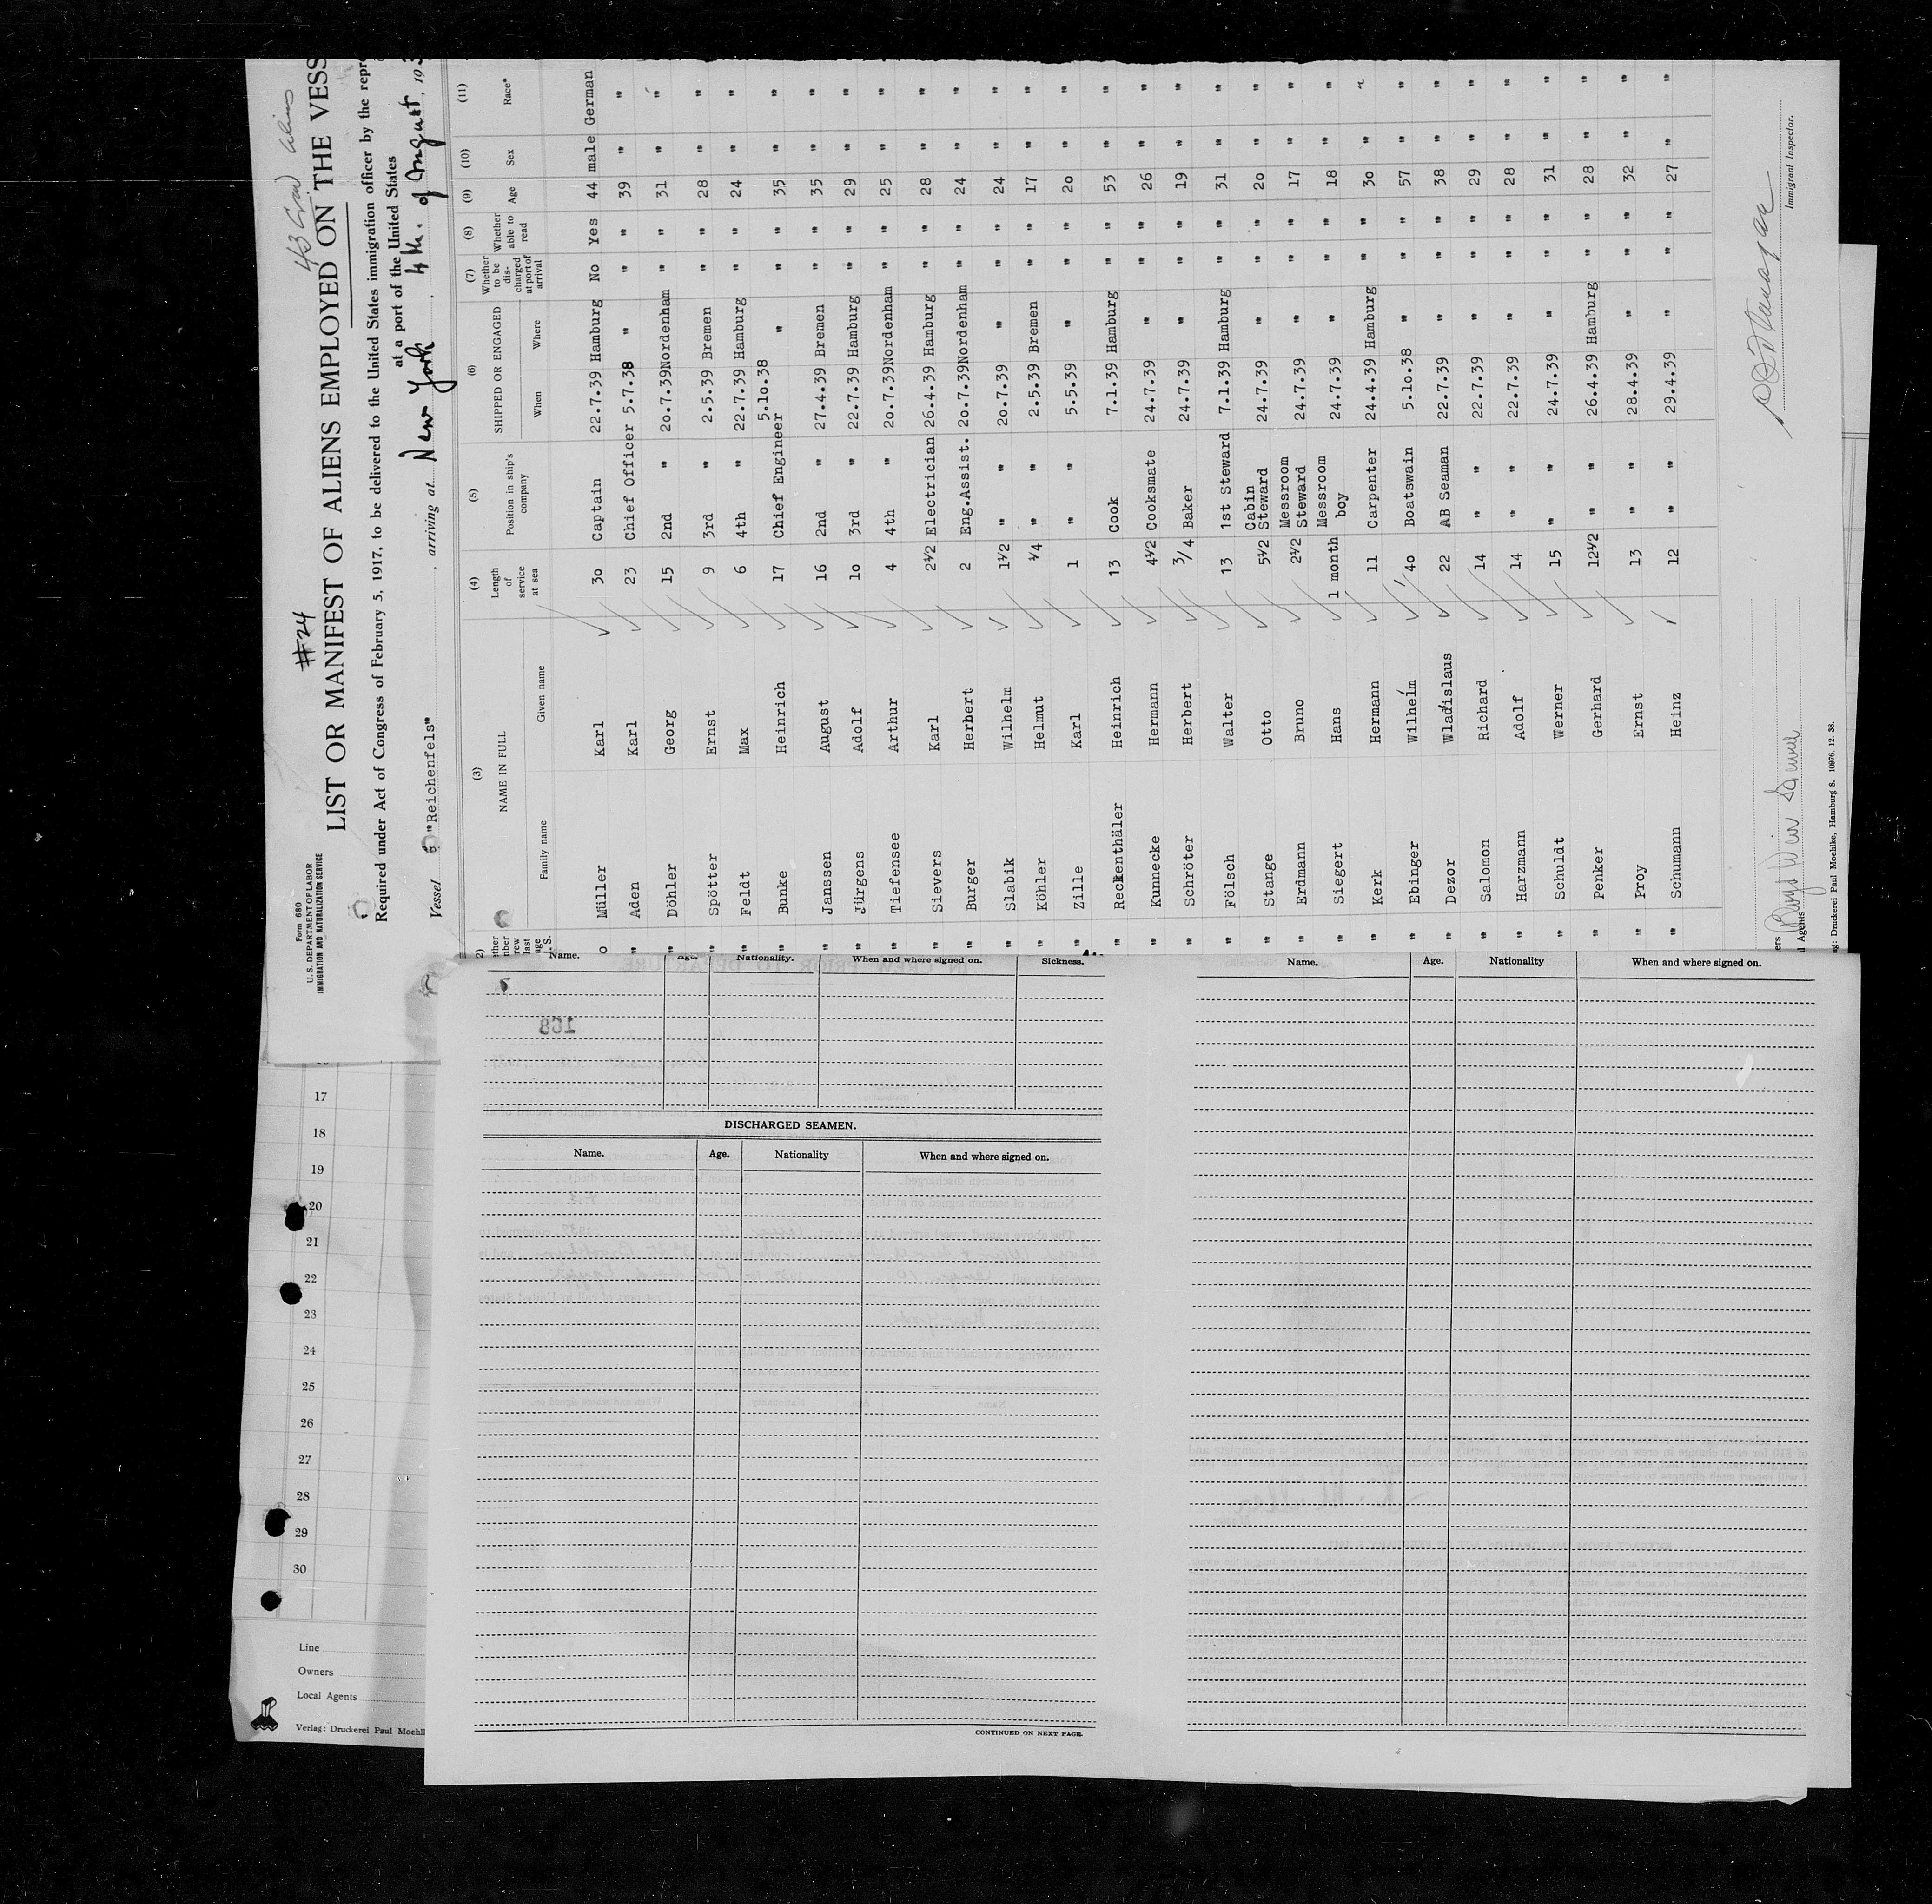 #24
43 Crew Aliens
Form 680
U. S. DEPARTMENT OF LABOR
IMMIGRATION AND NATURALIZATION SERVICE
LIST OR MANIFEST OF ALIENS EMPLOYED ON THE VESS
Required under Act of Congress of February 5, 1917, to be delivered to the United States immigration officer by the repr
at a port of the United States
Vessel "Reichenfels", arriving at New York, 4th. of August, 193
(3) (4) (5) (6) (7) (8) (9) (10) (11)
NAME IN FULL Length of service at sea Position in ship's company SHIPPED OR ENGAGED Whether to be discharged at port of arrival Whether able to read Age Sex Race*
Family name Given name When Where
Müller Karl 30 Captain 22.7.39 Hamburg No Yes 44 male German
" Aden Karl 23 Chief Officer 5.7.38 " " " 39 " "
" Döhler Georg 15 2nd " 20.7.39 Nordenham " " 31 " "
" Spötter Ernst 9 3rd " 2.5.39 Bremen " " 28 " "
" Feldt Max 6 4th " 22.7.39 Hamburg " " 24 " "
" Bunke Heinrich 17 Chief Engineer 5.10.38 " " " 35 " "
" Janssen August 16 2nd " 27.4.39 Bremen " " 35 " "
" Jürgens Adolf 10 3rd " 22.7.39 Hamburg " " 29 " "
" Tiefensee Arthur 4 4th " 20.7.39 Nordenham " " 25 " "
" Sievers Karl 2½ Electrician 26.4.39 Hamburg " " 28 " "
" Burger Herbert 2 Eng.Assist. 20.7.39 Nordenham " " 24 " "
" Slabik Wilhelm 1½ " " 20.7.39 " " " 24 " "
" Köhler Helmut ¼ " " 2.5.39 Bremen " " 17 " "
" Zille Karl 1 " " 5.5.39 " " " 20 " "
" Reckenthäler Heinrich 13 Cook 7.1.39 Hamburg " " 53 " "
" Kunnecke Hermann 4½ Cooksmate 24.7.39 " " " 26 " "
" Schröter Herbert 3/4 Baker 24.7.39 " " " 19 " "
" Fölsch Walter 13 1st Steward 7.1.39 Hamburg " " 31 " "
" Stange Otto 5½ Cabin Steward 24.7.39 " " " 20 " "
" Erdmann Bruno 2½ Messroom Steward 24.7.39 " " " 17 " "
" Siegert Hans 1 month Messroom boy 24.7.39 " " " 18 " "
" Kerk Hermann 11 Carpenter 24.4.39 Hamburg " " 30 " "
" Ebinger Wilhelm 40 Boatswain 5.10.38 " " " 57 " "
" Dezor Wladislaus 22 AB Seaman 22.7.39 " " " 38 " "
" Salomon Richard 14 " " 22.7.39 " " " 29 " "
" Harzmann Adolf 14 " " 22.7.39 " " " 28 " "
" Schuldt Werner 15 " " 24.7.39 " " " 31 " "
" Penker Gerhard 12½ " " 26.4.39 Hamburg " " 28 " "
" Proy Ernst 13 " " 28.4.39 " " " 32 " "
" Schumann Heinz 12 " " 29.4.39 " " " 27 " "
Immigrant Inspector.
Agents
Druckerei Paul Moehlke, Hamburg 8. 10976. 12. 38.
17
18
19
20
21
22
23
24
25
26
27
28
29
30
Line
Owners
Local Agents
Verlag: Druckerei Paul Moehl
Name. Age. Nationality. When and where signed on. Sickness.
168
DISCHARGED SEAMEN.
Name. Age. Nationality When and where signed on.
CONTINUED ON NEXT PAGE.
Name. Age. Nationality When and where signed on.